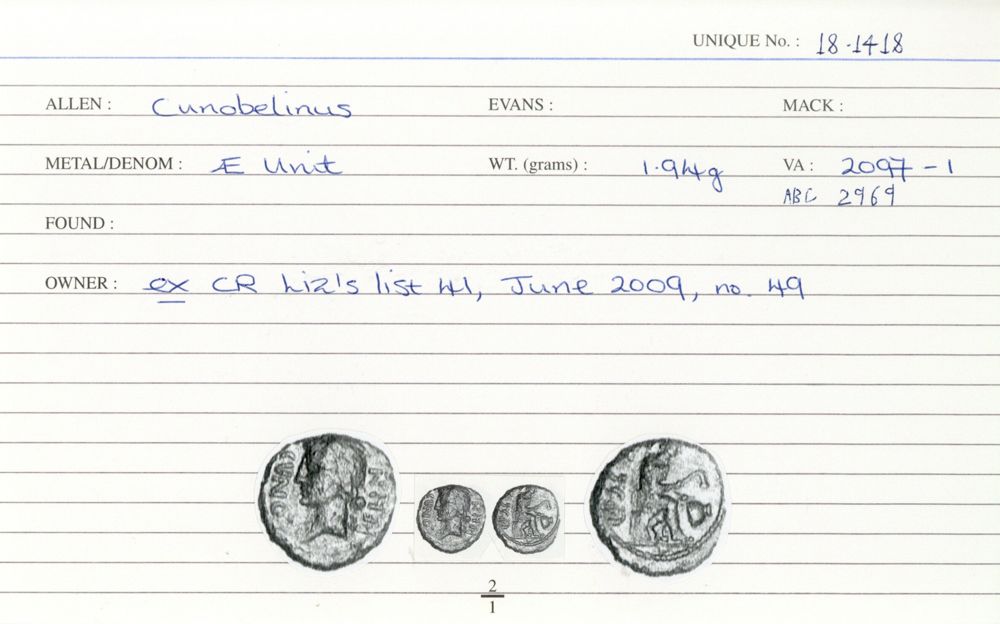 UNIQUE No. : 18-1418
ALLEN : Cunobelinus EVANS : MACK :
METAL/DENOM : Æ Unit WT. (grams) : 1.94g VA : 2097-1
ABC 2969
FOUND :
OWNER : ex CR Liz's list 41, June 2009, no. 49
2
1